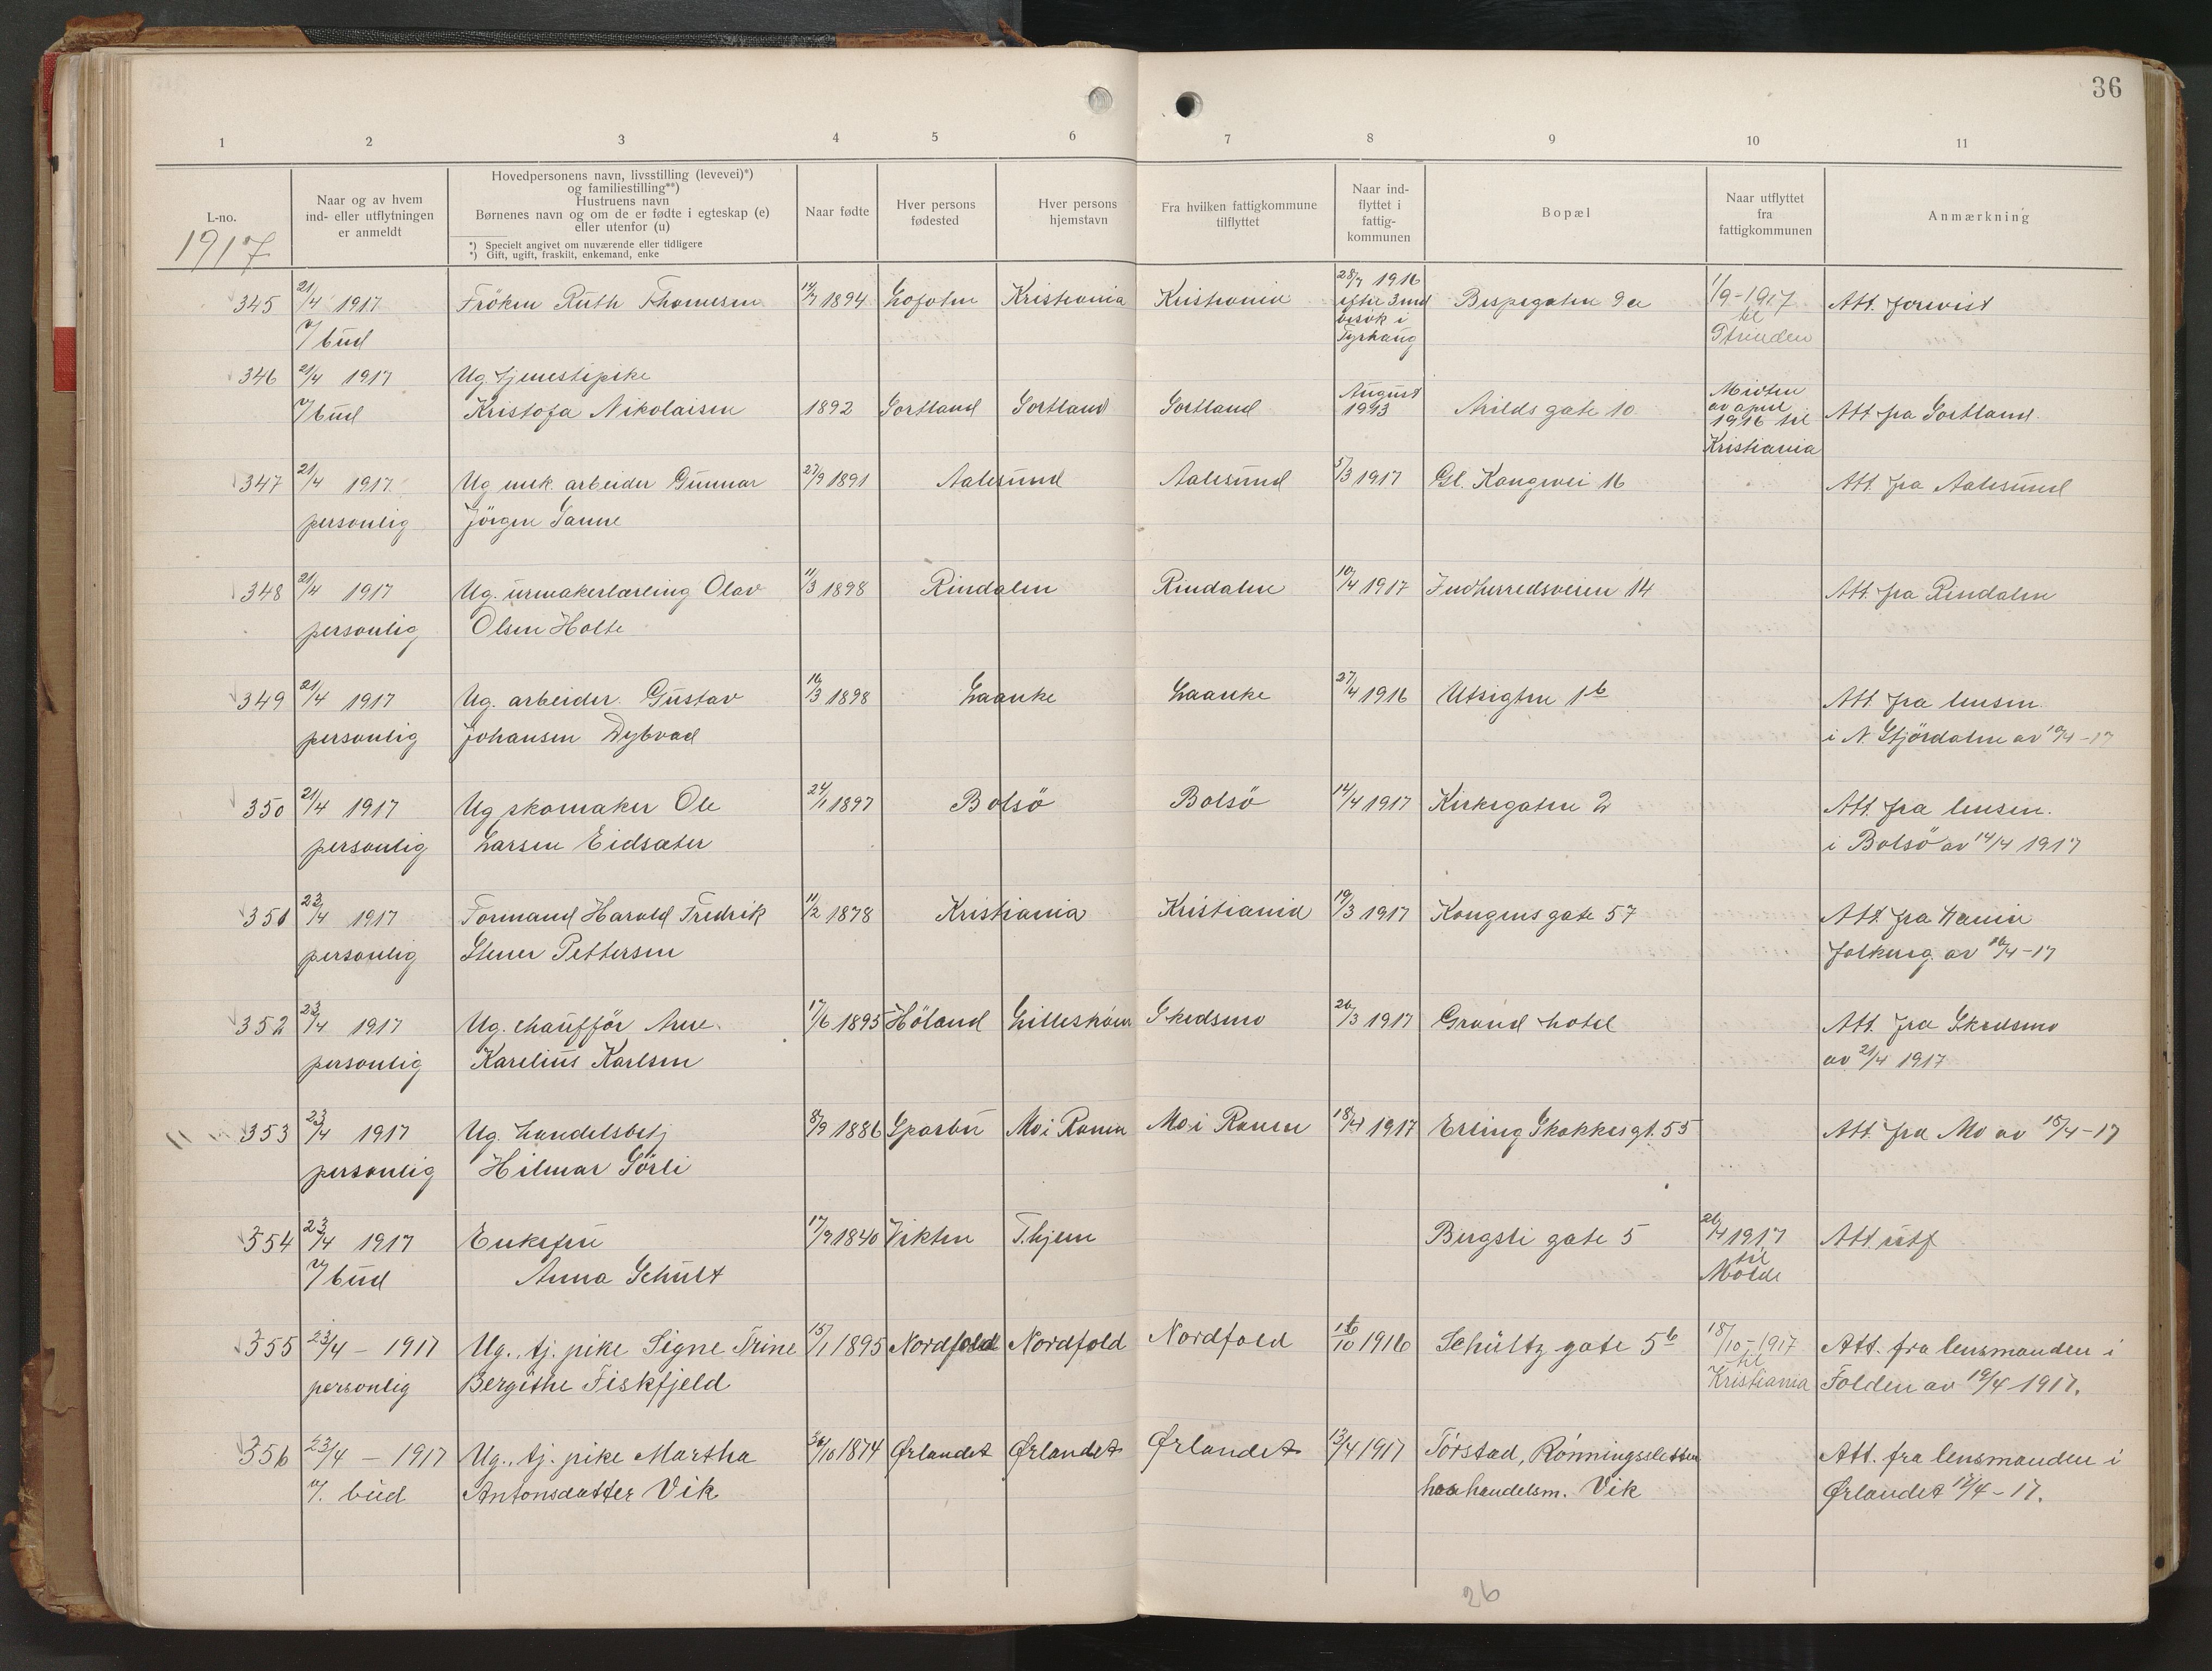 36
1 2 3 4 5 6 7 8 9 10 11
L-no.
1917
Naar og av hvem
ind- eller utflytningen
er anmeldt
Hovedpersonens navn, livsstilling (levevei)*)
og familiestilling**)
Hustruens navn
Børnenes navn og om de er fødte i egteskap (e)
eller utenfor (u)
*) Specielt angivet om nuværende eller tidligere
*) Gift, ugift, fraskilt, enkemand, enke
Naar fødte
Hver persons
fødested
Hver persons
hjemstavn
Fra hvilken fattigkommune
tilflyttet
Naar ind-
flyttet i
fattig-
kommunen
Bopæl
Naar utflyttet
fra
fattigkommunen
Anmærkning
345 21/4 1917 Fröken Ruth Thomesen 19/7 1894 Lofoten Kristiania Kristiania 28/7 1916 Bispegaten 9a 1/9-1917 Att. forevist
v/ bud efter 3 md besök i Tyrhaug til Strinden
346 21/4 1917 Ug. tjenestepike
v/ bud Kristofa Nikolaisen 1892 Sortland Sortland Sortland August 1913 Arilds gate 10 Midten av april 1916 til Kristiania Att. fra Sortland.
347 21/4 1917 Ug. mek. arbeider Gunnar 27/9 1891 Aalesund Aalesund 5/3 1917 Gl. Kongevei 16 Att. fra Aalesund
personlig Jörgen Sanne
348 21/4 1917 Ug. urmakerlærling Olav 11/3 1898 Rindalen Rindalen 10/4 1917 Indherredsveien 14 Att. fra Rindalen
personlig Olsen Holte
349 21/4 1917 Ug. arbeider Gustav 16/3 1898 Laanke Laanke 27/4 1916 Utsigten 1b Att. fra lensm.
personlig Johansen Dybvad i N. Stjördalen av 19/4-17
350 21/4 1917 Ug skomaker Ole 24/1 1897 Bolsö Bolsö 14/4 1917 Kirkegaten 2 Att. fra lensm.
personlig Larsen Eidsæter i Bolsö av 14/4 1917
351 23/4 1917 Formand Harald Fredrik 11/2 1878 Kristiania Kristiania 19/3 1917 Kongens gate 57 Att. fra
personlig Stener Pettersen folkereg. av 16/4-17
352 23/4 1917 Ug. chaufför Arne 17/6 1895 Höland Lilleström Skedsmo 26/3 1917 Grand hotel Att. fra Skedsmo
personlig Karelius Karlsen av 21/4 1917
353 23/4 1917 Ug. handelsbetj 8/9 1886 Sparbu Mo i Ranen Mo i Ranen 18/4 1917 Erling Skakkes gt. 55 Att. fra Mo av 15/4-17
personlig Hilmar Sörli
354 23/4 1917 Enkefru 17/9 1840 Vikten T.hjem Bergsli gate 5 26/4 1917 Att. utf
v/ bud Anna Schult til Molde
355 23/4 - 1917 Ug. tj. pike Signe Trine 15/1 1895 Nordfold Nordfold Nordfold 16/10 1916 Schultz gate 5b 18/10-1917 Att. fra lensmanden i
personlig Bergithe Fiskfjeld til Kristiania Folden av 19/4 1917.
356 23/4 - 1917 Ug. tj. pike Martha 26/10 1874 Ørlandet Ørlandet Ørlandet 13/4 1917 Törstad, Rönningssletten Att. fra lensmanden i
v/. bud Antonsdatter Vik hos handelsm. Vik Ørlandet 12/4-17.
26